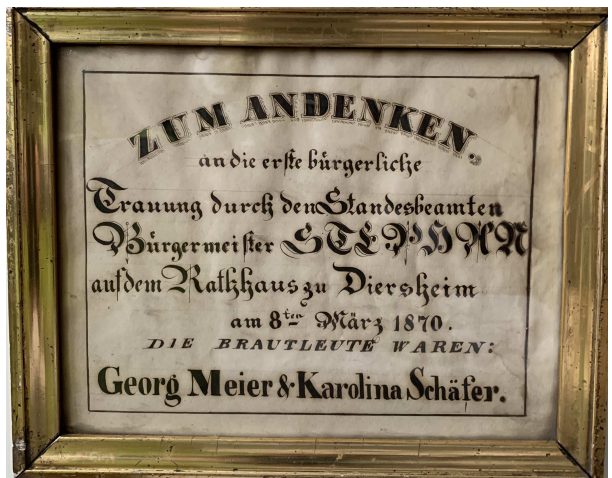 ZUM ANDENKEN,
an die erste bürgerliche
Trauung durch den Standesbeamten
Bürgermeister STEPHAN
auf dem Rathhaus zu Diersheim
am 8ten März 1870.
DIE BRAUTLEUTE WAREN:
Georg Meier & Karolina Schäfer.